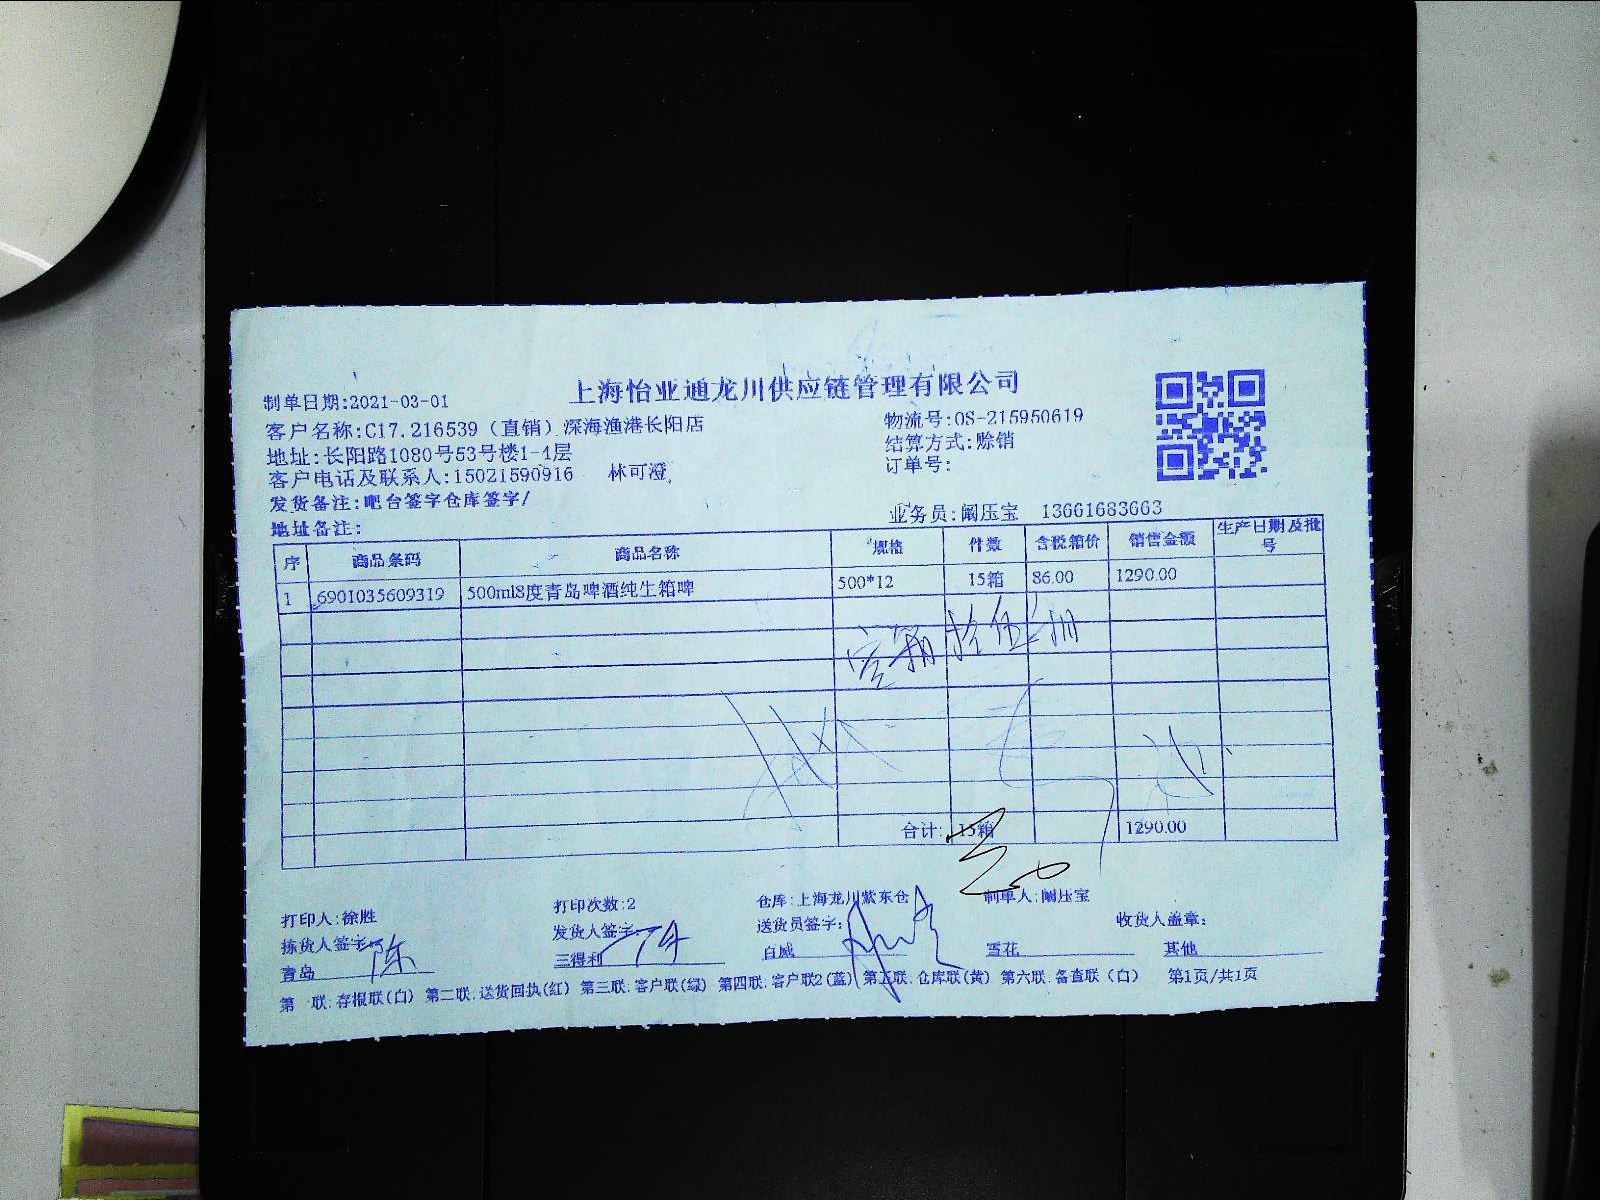 上海怡亚通龙川供应链管理有限公司
制单日期:2021-03-01
客户名称:C17.216539（直销）深海渔港长阳店
物流号:OS-215950619
地址:长阳路1080号53号楼1-4层
结算方式:赊销
客户电话及联系人:15021590916 林可澄,
订单号:
发货备注:吧台签字仓库签字/
业务员:阚压宝 13661683663
地址备注:
序 商品条码 商品名称 规格 件数 含税箱价 销售金额 生产日期及批号
1 6901035609319 500ml8度青岛啤酒纯生箱啤 500*12 15箱 86.00 1290.00
空箱拾伍
合计: 15箱 1290.00
打印人:徐胜 打印次数:2 仓库:上海龙川紫东仓 制单人:阚压宝
拣货人签字: 陈 发货人签字: 送货员签字: 收货人盖章:
青岛 三得利 百威 雪花 其他
第一联:存根联(白) 第二联:送货回执(红) 第三联:客户联(绿) 第四联:客户联2(蓝) 第五联:仓库联(黄) 第六联:备查联（白） 第1页/共1页